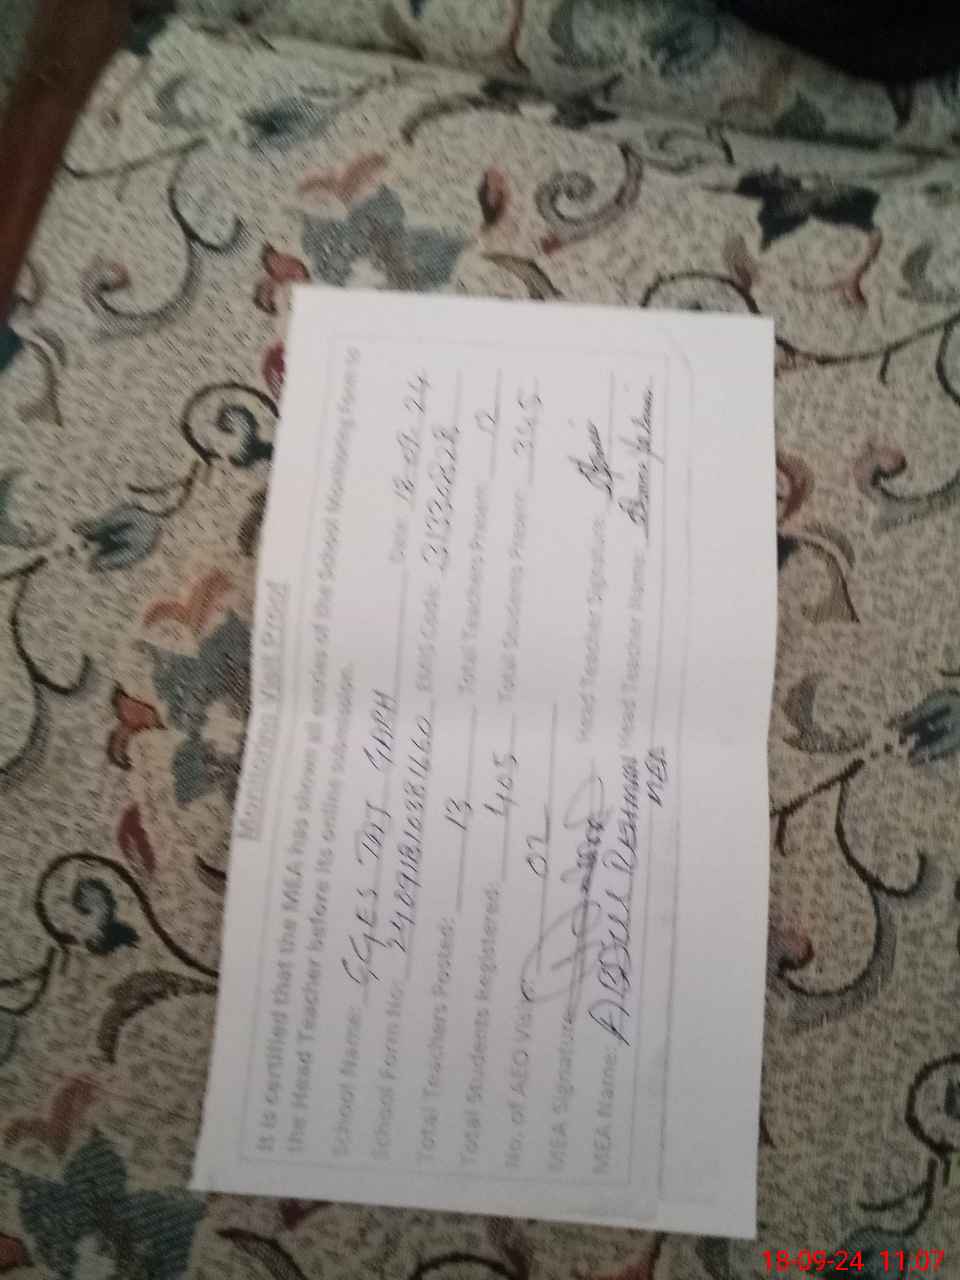 Monitoring Visit Proof
It is certified that the MEA has shown all entries of the School Monitoring Form to
the Head Teacher before its online submission.
School Name: GGES TAJ GARH Date: 18-09-24
School Form No: EMIS Code:
Total Teachers Posted: 13 Total Teachers Present: 12
Total Students Registered: 405 Total Students Present: 345
No. of AEO Visit: 02
MEA Signature: Head Teacher Signature:
MEA Name: ABDUL REHMAN Head Teacher Name:
MEA
18-09-24 11:07